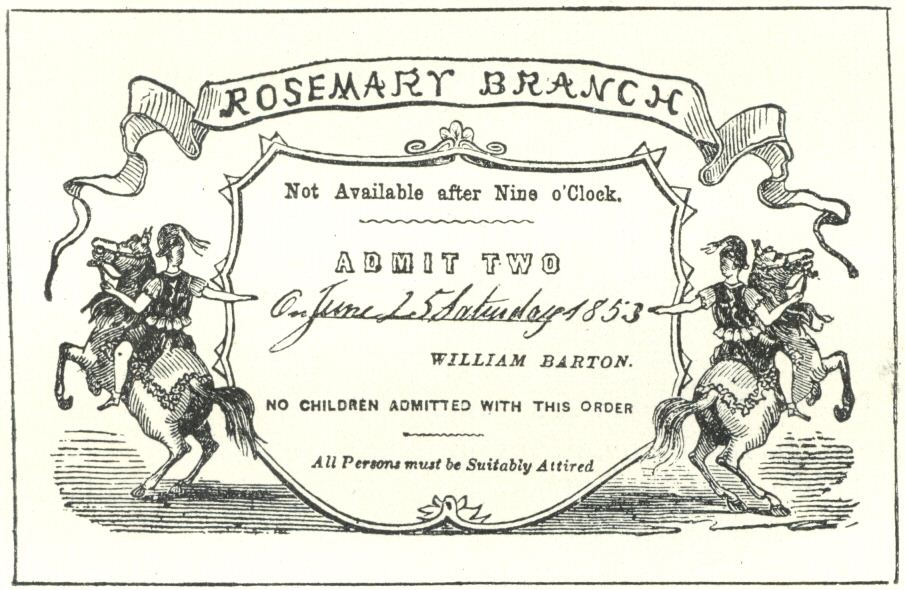 ROSEMARY BRANCH
Not Available after Nine o'Clock.
ADMIT TWO
On June 25 Saturday 1853
WILLIAM BARTON.
NO CHILDREN ADMITTED WITH THIS ORDER
All Persons must be Suitably Attired